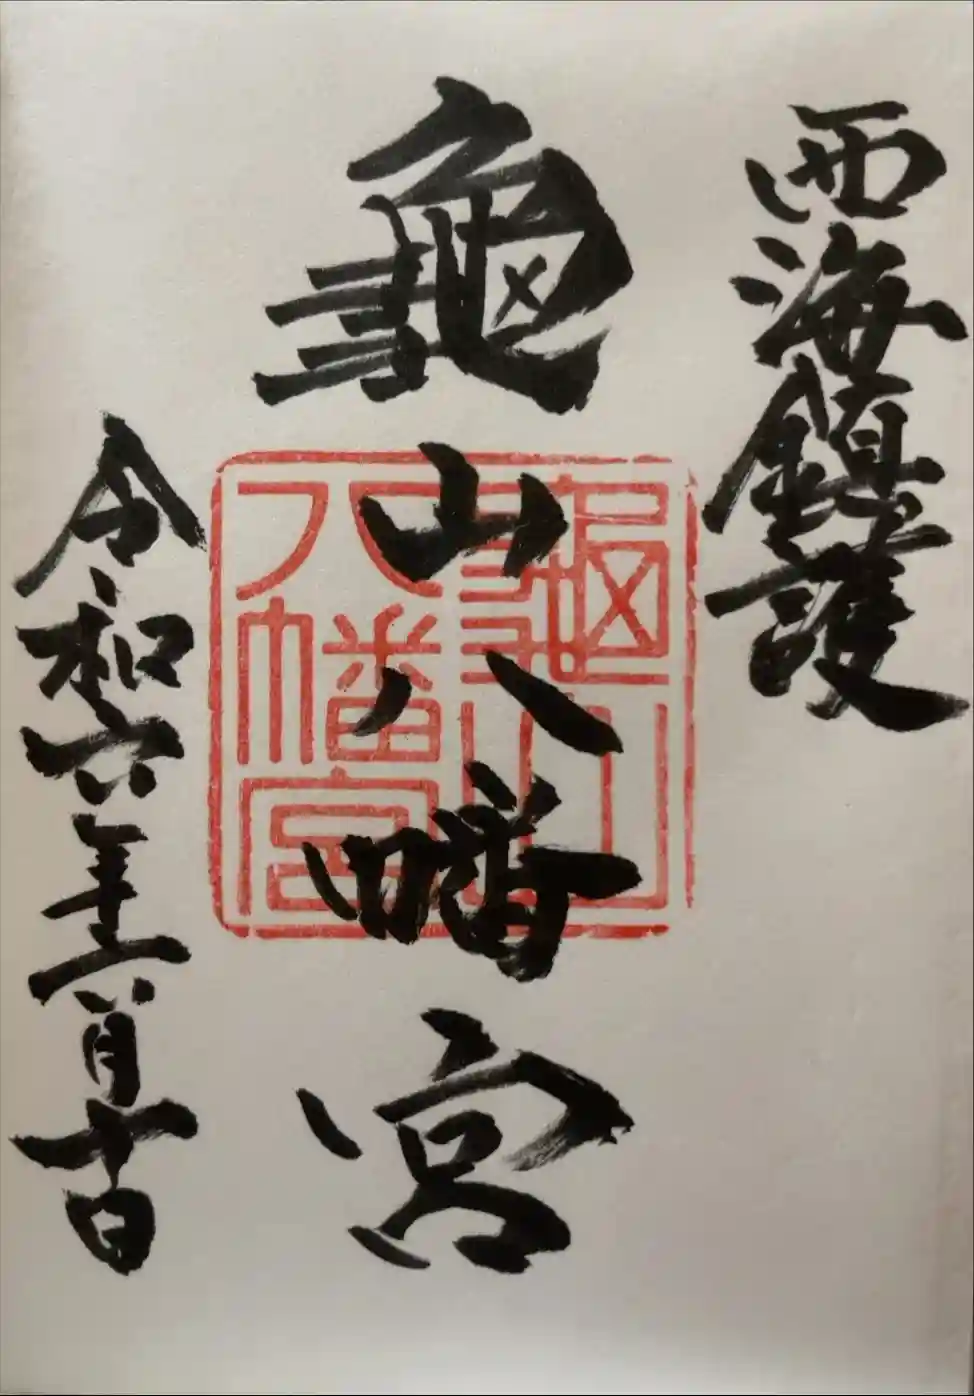 西海鎮護
龜山八幡宮
龜山
八幡宮
令和六年六月十日